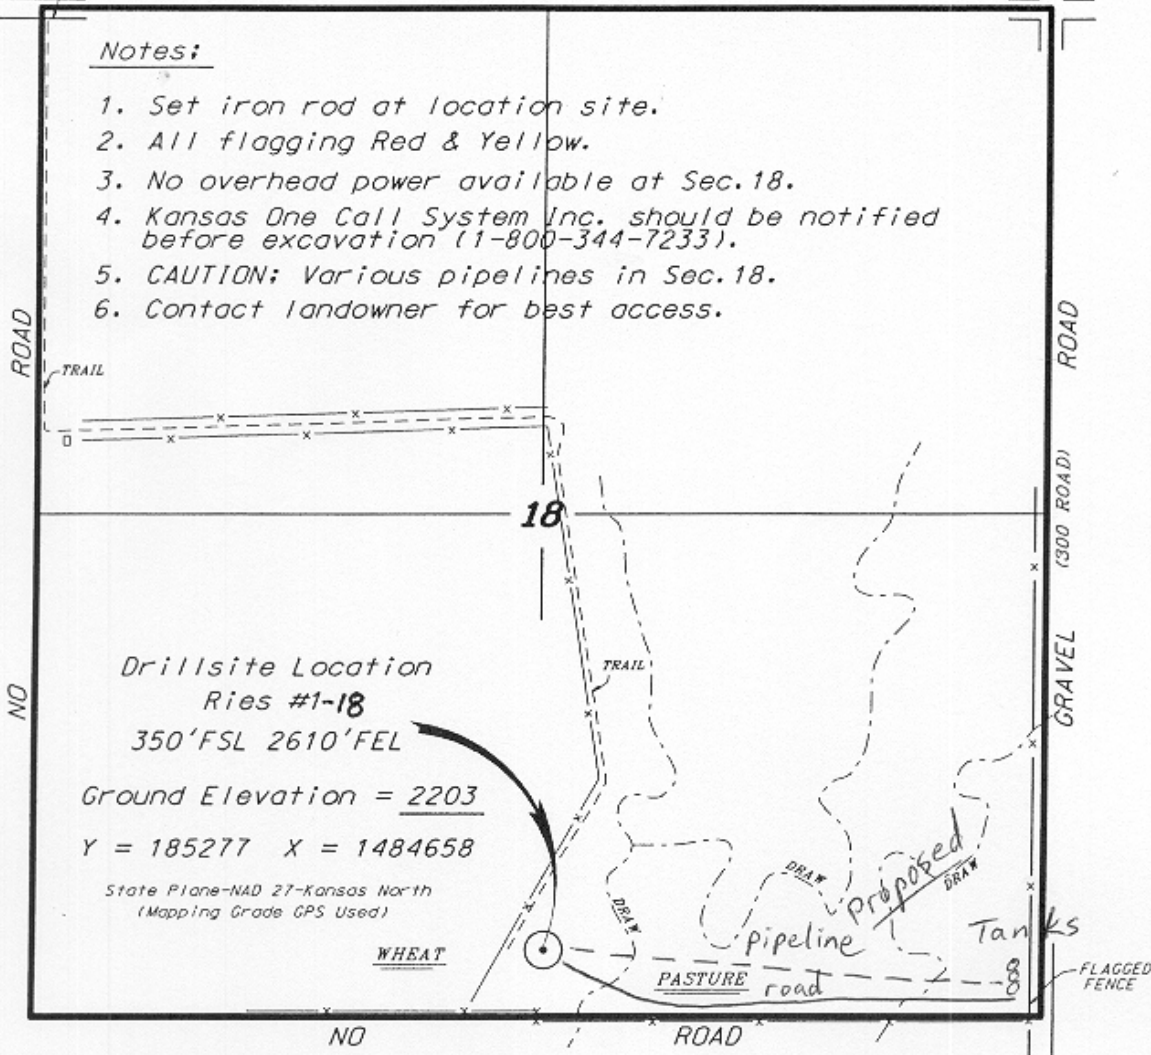 Notes:
1. Set iron rod at location site.
2. All flagging Red & Yellow.
3. No overhead power available at Sec.18.
4. Kansas One Call System Inc. should be notified
before excavation (1-800-344-7233).
5. CAUTION: Various pipelines in Sec.18.
6. Contact landowner for best access.
ROAD
ROAD
TRAIL
(300 ROAD)
18
TRAIL
NO
GRAVEL
Drillsite Location
Ries #1-18
350'FSL 2610'FEL
Ground Elevation = 2203
Y = 185277 X = 1484658
State Plane-NAD 27-Kansas North
(Mapping Grade GPS Used)
WHEAT
DRAW
DRAW
DRAW
Proposed
pipeline
Tanks
PASTURE
road
8
8
FLAGGED
FENCE
NO
ROAD